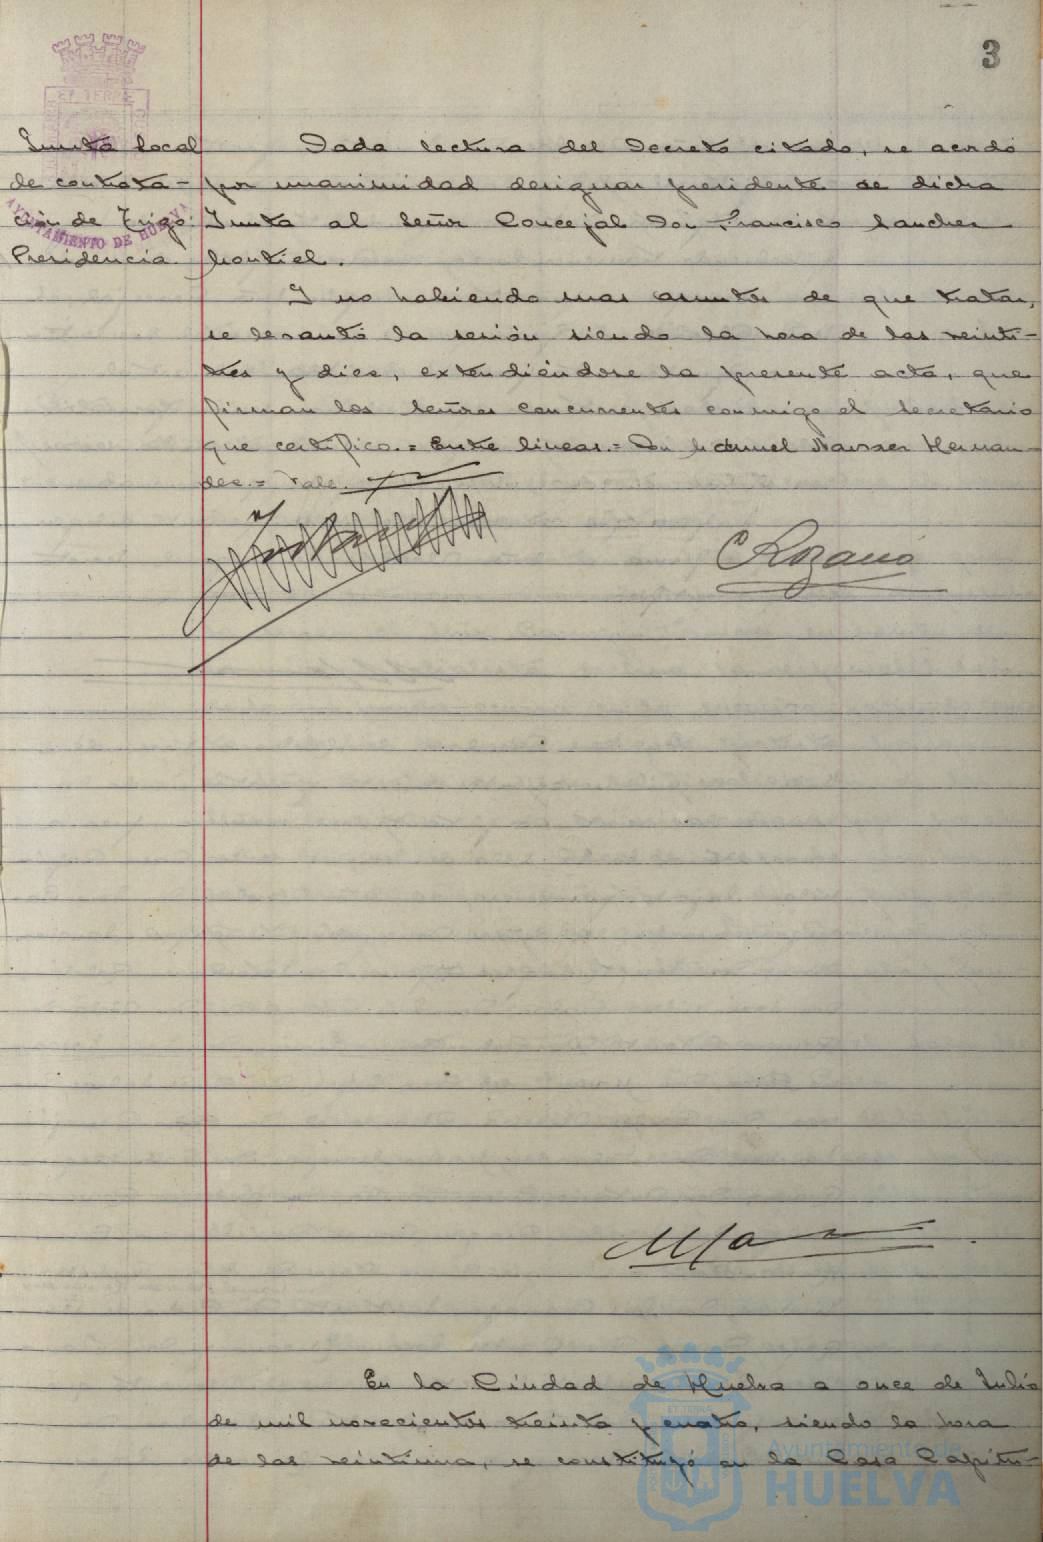 3
ET TERRE
AYUNTAMIENTO DE HUELVA
Junta local
de contrata-
ción de Trigo.
Presidencia
Dada lectura del Decreto citado, se acordó
por unanimidad designar presidente de dicha
Junta al Señor Concejal Don Francisco Sanchez
Montiel.
Y no habiendo mas asuntos de que tratar,
se levantó la sesión siendo la hora de las veinti-
tres y diez, extendiéndose la presente acta, que
firman los Señores concurrentes conmigo el Secretario
que certifico.= Entre lineas.= Don Manuel Narvaez Hernan-
dez.= Vale.
En la Ciudad de Huelva a once de Julio
de mil novecientos treinta y cuatro, siendo la hora
de las veintiuna, se constituyó en la Casa Capitu-
Ayuntamiento de
HUELVA